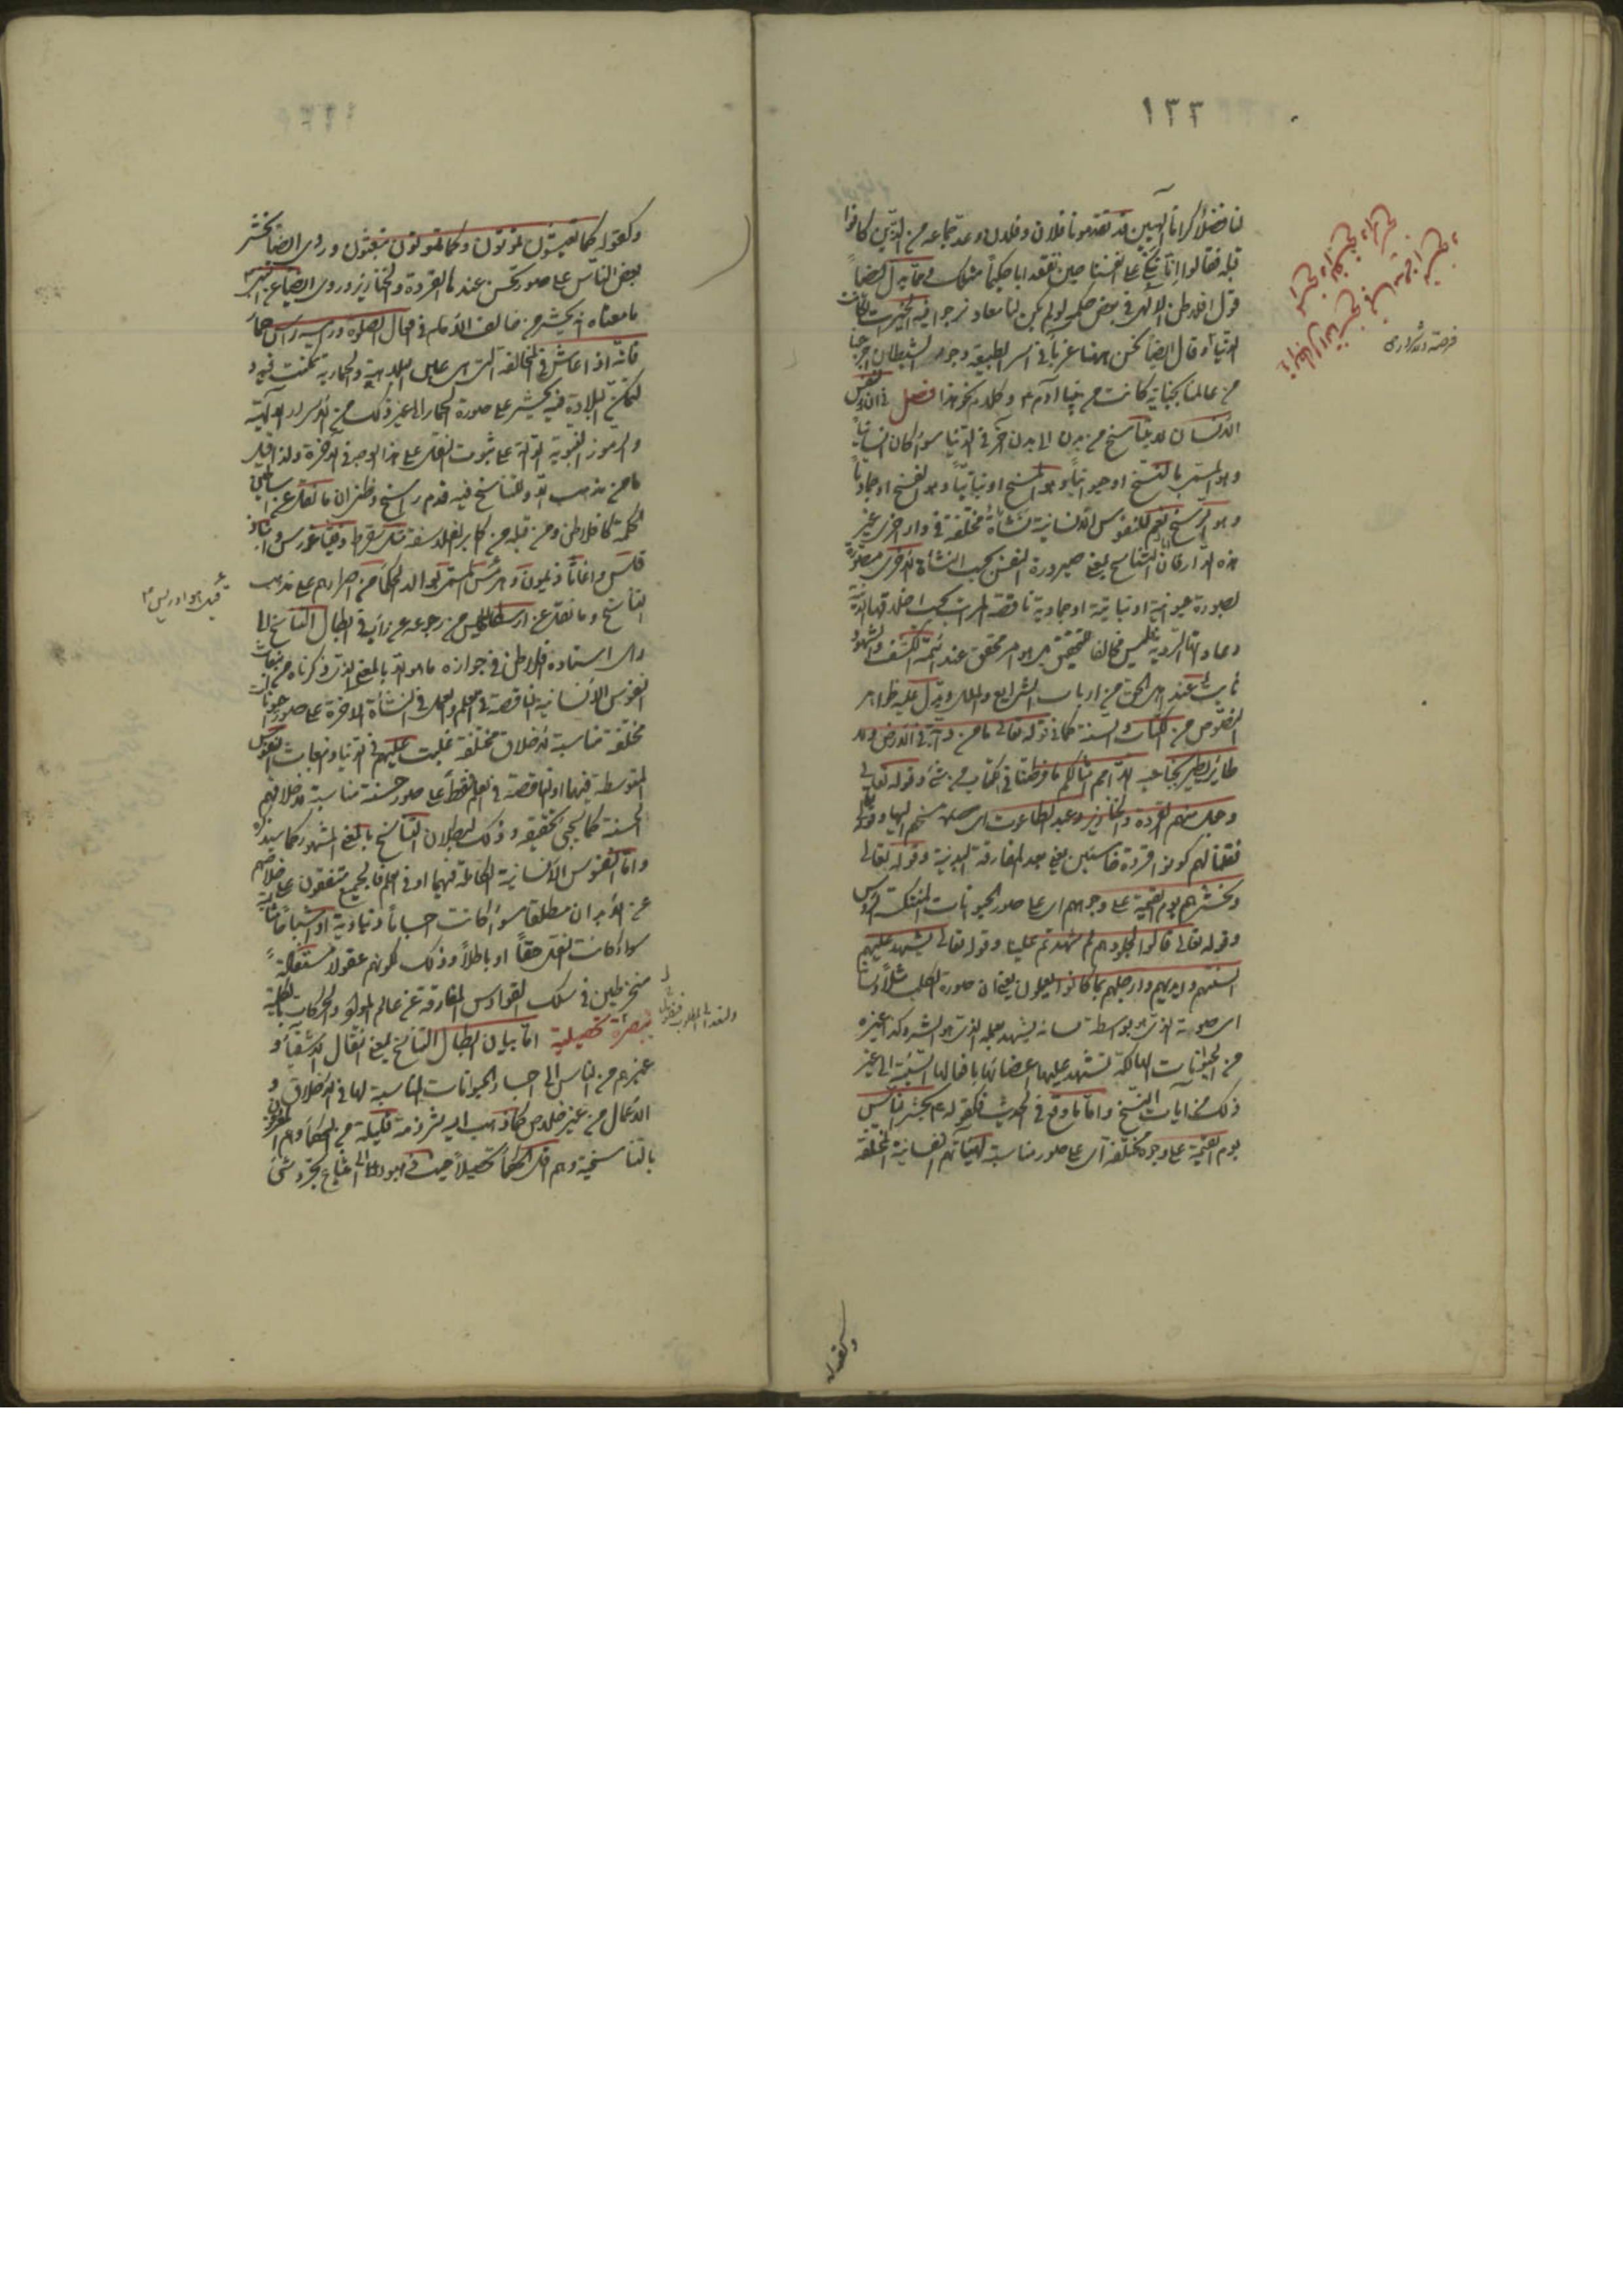 ١٣٣
لنا فضلاً كراماً الهيين قد تقدمونا فلان وفلان وعد جماعة من الذين كانوا
قبله فقالوا انا نبكى على انفسنا حين نفقد ابا حكيماً مثلك ومما يدل ايضاً
قول افلاطن الالهى فى بعض حكمه لو لم يكن لنا معاد نرجوا فيه الخيرات لكانت
الدنيا وقال ايضاً نحن ههنا غرباً فى اسر الطبيعة وجوار الشيطان اخرجنا
من عالمنا بجناية كانت من ابينا آدم وكلام نحو هذا فصل فى ان نفس
الانسان لا يتناسخ من بدن الى بدن آخر فى الدنيا سواء كان انسانياً
وهو المسمى بالنسخ او حيوانياً وهو المسخ او نباتياً وهو الفسخ او جمادياً
وهو الرسخ نعم للنفوس الانسانية نشآت مختلفة فى دار اخرى غير
هذه الدار فان التناسخ بمعنى صيرورة النفس بحسب النشأة الاخرى مصورة
بصورة حيوانية او نباتية او جمادية ناقصة المراتب بحسب اخلاقها الدنية
وعاداتها الردية ليس مخالفا للتحقيق بل هو امر محقق عند ائمة الكشف والشهود
ثابت عند اهل الحق من ارباب الشرايع والملل ويدل عليه ظواهر
النصوص من الكتاب والسنة كما فى قوله تعالى ما من دابة فى الارض ولا
طائر يطير بجناحيه الا امم امثالكم ما فرطنا فى الكتاب من شئ وقوله تعالى
وجعل منهم القردة والخنازير وعبد الطاغوت اى مسخهم اليها وقوله
فقلنا لهم كونوا قردة خاسئين يعنى بعد المفارقة البدنية وقوله تعالى
ونحشرهم يوم القيمة على وجوههم اى على صور الحيوانات المنتكسة الرؤس
وقوله تعالى قالوا لجلودهم لم شهدتم علينا وقوله تعالى يشهد عليهم
السنتهم وايديهم وارجلهم بما كانوا يعملون يعنى ان صورة الكلب مثلاً ولسانه
اى صوته الذى هو بواسطة لسانه يشهد بعمله الذى هو الشر وكذا غيره
من الحيوانات الهالكة تشهد عليها اعضائها بافعالها السيئة الى غير
ذلك من ايات النسخ واما ما وقع فى الحديث فكقوله ع يحشر الناس
يوم القيمة على وجوه مختلفة اى على صور مناسبة لهيئاتهم النفسانية المختلفة
وكقوله
وكقوله كما تعيشون تموتون وكما تموتون تبعثون وروى ايضاً يحشر
بعض الناس على صور تحسن عندها القردة والخنازير وروى ايضاً عن النبى
ما معناه انه يحشر من خالف الامام فى افعال الصلوة وراسه راس حمار
فانه اذا عاش فى المخالفة التى هى عين البلاهة والحمارية تمكنت فيه و
لتمكن البلادة فيه يحشر على صورة الحمار الى غير ذلك من الاسرار الالهية
والرموز النبوية الدالة على ثبوت النقل على هذا الوجه فى الاخرة ولذا قيل
ما من مذهب الا وللتناسخ فيه قدم راسخ وظنى ان ما نقل عن اساطين
الحكمة كافلاطن ومن قبله من اكابر الفلاسفة مثل سقراط وفيثاغورس وانباذ
قلس واغاثاذيمون وهرمس المسمى بوالد الحكماً من اصرارهم على مذهب
التناسخ وما نقل عن ارسطاطاليس من رجوعه عن رايه فى ابطال التناسخ الى
راى استاده افلاطن فى جوازه ما هو الا بالمعنى الذى ذكرناه من انبعاث
النفوس الانسانية الناقصة فى العلم والعمل فى النشأة الاخرة على صور حيوانات
مختلفة مناسبة لاخلاق مختلفة غلبت عليهم فى الدنيا وانبعاث النفوس
المتوسطة فيهما او الناقصة فى العلم فقط على صور حسنة مناسبة لاخلاقهم
الحسنة كما يجئ تحقيقه وذلك لبطلان التناسخ بالمعنى المشهور كما سيذكره
واما النفوس الانسانية الكاملة فيهما او فى العلم فالجميع متفقون على خلاصهم
عن الابدان مطلقا سواء كانت اجساماً دنياوية او اشباحا مثالية
سواء كانت النقل حقاً او باطلاً وذلك لكونهم عقولا مستقلة
منخرطين فى سلك القوادس المفارقة عن عالم المواد والحركات بالكلية
تبصرة تحصيلية اما بيان ابطال التناسخ بمعنى انتقال الاشقياً و
غيرهم من الناس الى اجساد الحيوانات المناسبة لها فى الاخلاق و
الاعمال من غير خلاص كما ذهب اليه شرذمة قليلة من الحكماً وهم المعروفون
بالتناسخية وهم اقل الحكماً تحصيلاً حيث ذهبوا الى امتناع تجرد شئ
قيل هو ادريس ع